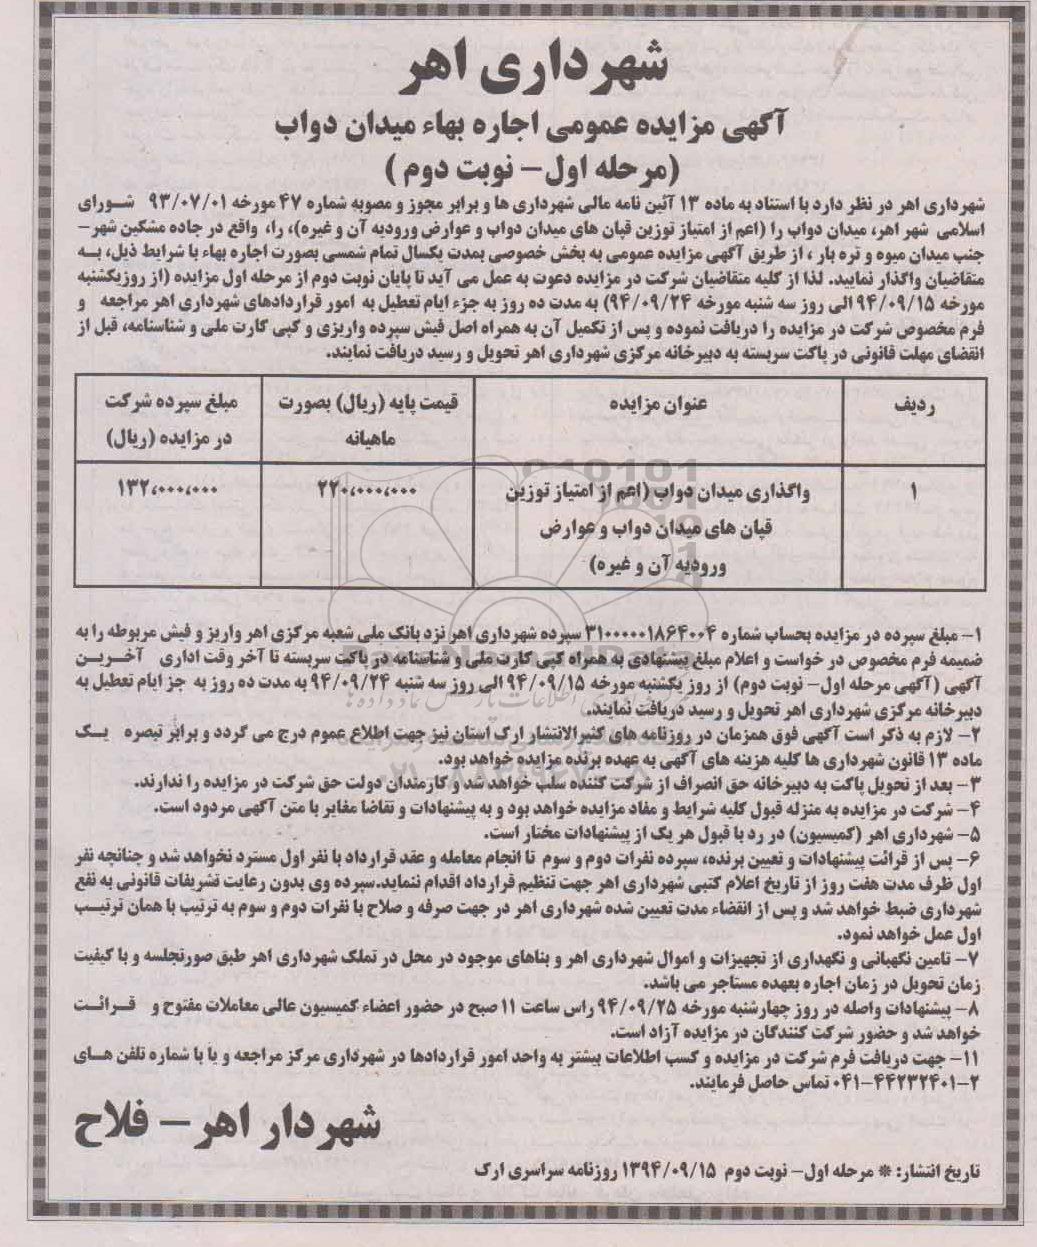 شهرداری اهر
آگهی مزایده عمومی اجاره بهاء میدان دواب
(مرحله اول- نوبت دوم )
شهرداری اهر در نظر دارد با استناد به ماده ۱۳ آئین نامه مالی شهرداری ها و برابر مجوز و مصوبه شماره ۴۷ مورخه ۹۳/۰۷/۰۱ شــورای
اسلامی شهر اهر، میدان دواب را (اعم از امتیاز توزین قپان های میدان دواب و عوارض ورودیه آن و غیره)، را، واقع در جاده مشکین شهر-
جنب میدان میوه و تره بار ، از طریق آگهی مزایده عمومی به بخش خصوصی بمدت یکسال تمام شمسی بصورت اجاره بهاء با شرایط ذیل، بــه
متقاضیان واگذار نمایید. لذا از کلیه متقاضیان شرکت در مزایده دعوت به عمل می آید تا پایان نوبت دوم از مرحله اول مزایده (از روزیکشنبه
مورخه ۹۴/۰۹/۱۵ الی روز سه شنبه مورخه ۹۴/۰۹/۲۴) به مدت ده روز به جزء ایام تعطیل به امور قراردادهای شهرداری اهر مراجعه و
فرم مخصوص شرکت در مزایده را دریافت نموده و پس از تکمیل آن به همراه اصل فیش سپرده واریزی و کپی کارت ملی و شناسنامه، قبل از
انقضای مهلت قانونی در پاکت سربسته به دبیرخانه مرکزی شهرداری اهر تحویل و رسید دریافت نمایند.
ردیف عنوان مزایده قیمت پایه (ریال) بصورت ماهیانه مبلغ سپرده شرکت در مزایده (ریال)
۱ واگذاری میدان دواب (اعم از امتیاز توزین ۲۲۰،۰۰۰،۰۰۰ ۱۳۲،۰۰۰،۰۰۰
قپان های میدان دواب و عوارض
ورودیه آن و غیره)
۱- مبلغ سپرده در مزایده بحساب شماره ۳۱۰۰۰۰۰۱۸۶۴۰۰۴ سپرده شهرداری اهر نزد بانک ملی شعبه مرکزی اهر واریز و فیش مربوطه را به
ضمیمه فرم مخصوص در خواست و اعلام مبلغ پیشنهادی به همراه کپی کارت ملی و شناسنامه در پاکت سربسته تا آخر وقت اداری آخــرین
آگهی (آگهی مرحله اول- نوبت دوم) از روز یکشنبه مورخه ۹۴/۰۹/۱۵ الی روز سه شنبه ۹۴/۰۹/۲۴ به مدت ده روز به جز ایام تعطیل به
دبیرخانه مرکزی شهرداری اهر تحویل و رسید دریافت نمایند.
۲- لازم به ذکر است آگهی فوق همزمان در روزنامه های کثیرالانتشار ارک استان نیز جهت اطلاع عموم درج می گردد و برابر تبصره یــک
ماده ۱۳ قانون شهرداری ها کلیه هزینه های آگهی به عهده برنده مزایده خواهد بود.
۳- بعد از تحویل پاکت به دبیرخانه حق انصراف از شرکت کننده سلب خواهد شد و کارمندان دولت حق شرکت در مزایده را ندارند.
۴- شرکت در مزایده به منزله قبول کلیه شرایط و مفاد مزایده خواهد بود و به پیشنهادات و تقاضا مغایر با متن آگهی مردود است.
۵- شهرداری اهر (کمیسیون) در رد یا قبول هر یک از پیشنهادات مختار است.
۶- پس از قرائت پیشنهادات و تعیین برنده، سپرده نفرات دوم و سوم تا انجام معامله و عقد قرارداد با نفر اول مسترد نخواهد شد و چنانچه نفر
اول ظرف مدت هفت روز از تاریخ اعلام کتبی شهرداری اهر جهت تنظیم قرارداد اقدام ننماید.سپرده وی بدون رعایت تشریفات قانونی به نفع
شهرداری ضبط خواهد شد و پس از انقضاء مدت تعیین شده شهرداری اهر در جهت صرفه و صلاح با نفرات دوم و سوم به ترتیب با همان ترتیــب
اول عمل خواهد نمود.
۷- تامین نگهبانی و نگهداری از تجهیزات و اموال شهرداری اهر و بناهای موجود در محل در تملک شهرداری اهر طبق صورتجلسه و با کیفیت
زمان تحویل در زمان اجاره بعهده مستاجر می باشد.
۸- پیشنهادات واصله در روز چهارشنبه مورخه ۹۴/۰۹/۲۵ راس ساعت ۱۱ صبح در حضور اعضاء کمیسیون عالی معاملات مفتوح و قــرائــت
خواهد شد و حضور شرکت کنندگان در مزایده آزاد است.
۱۱- جهت دریافت فرم شرکت در مزایده و کسب اطلاعات بیشتر به واحد امور قراردادها در شهرداری مرکز مراجعه و یا با شماره تلفن هــای
۰۴۱-۴۴۲۳۲۴۰۱-۲ تماس حاصل فرمایند.
شهردار اهر- فلاح
تاریخ انتشار: * مرحله اول- نوبت دوم ۱۳۹۴/۰۹/۱۵ روزنامه سراسری ارک